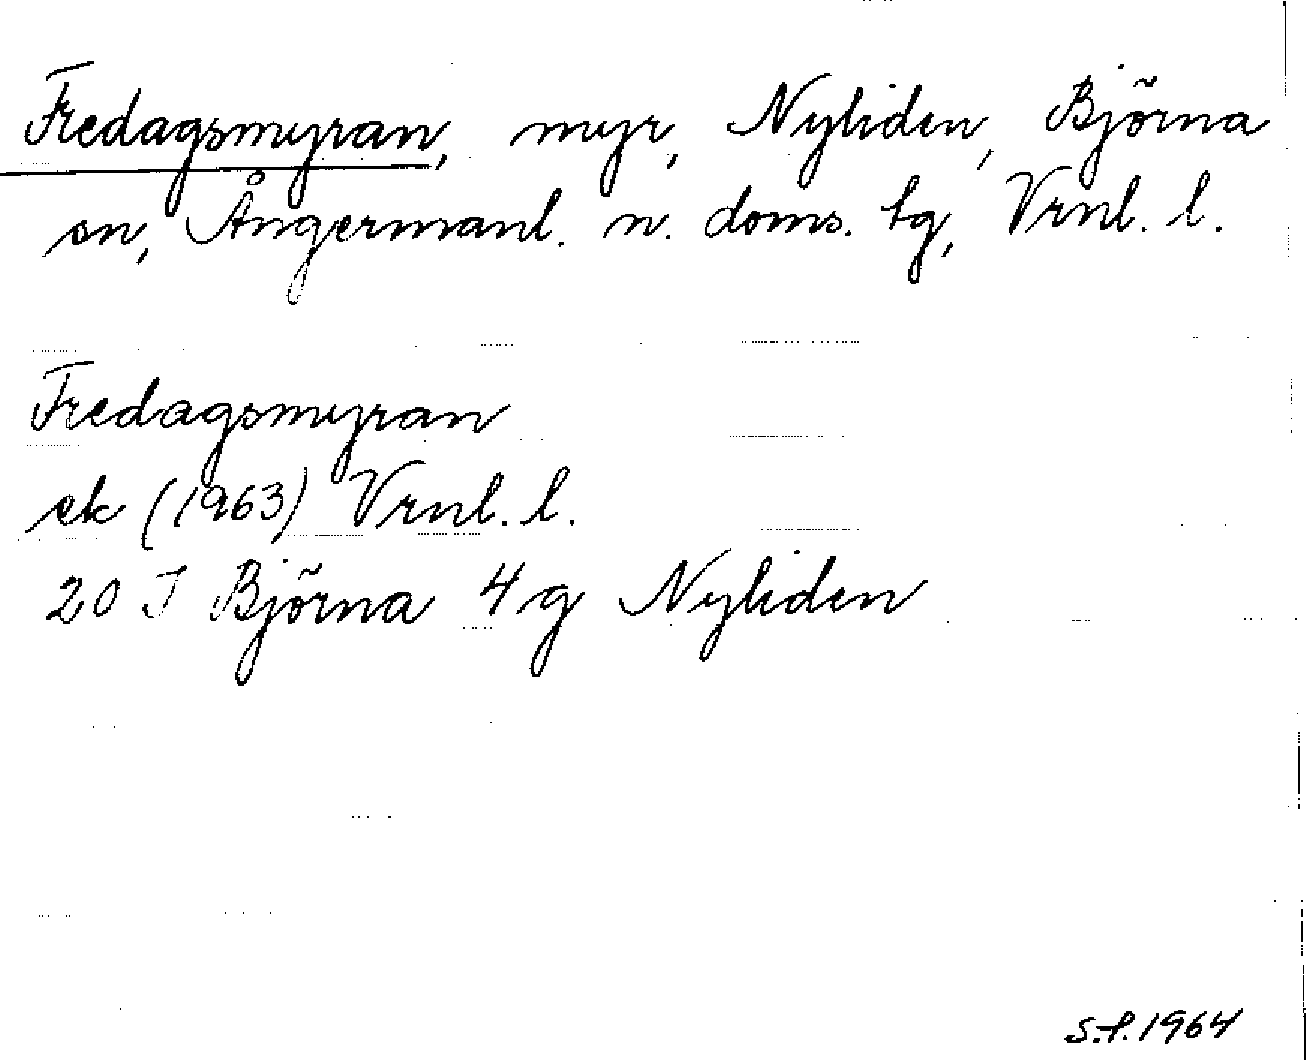 Fredagsmyran, myr, Nyliden, Björna
sn, Ångermanl. n. doms. tg, Vrnl. l.
Fredagsmyran
ek (1963) Vrnl. l.
20 J Björna 4 g Nyliden
S.f. 1964